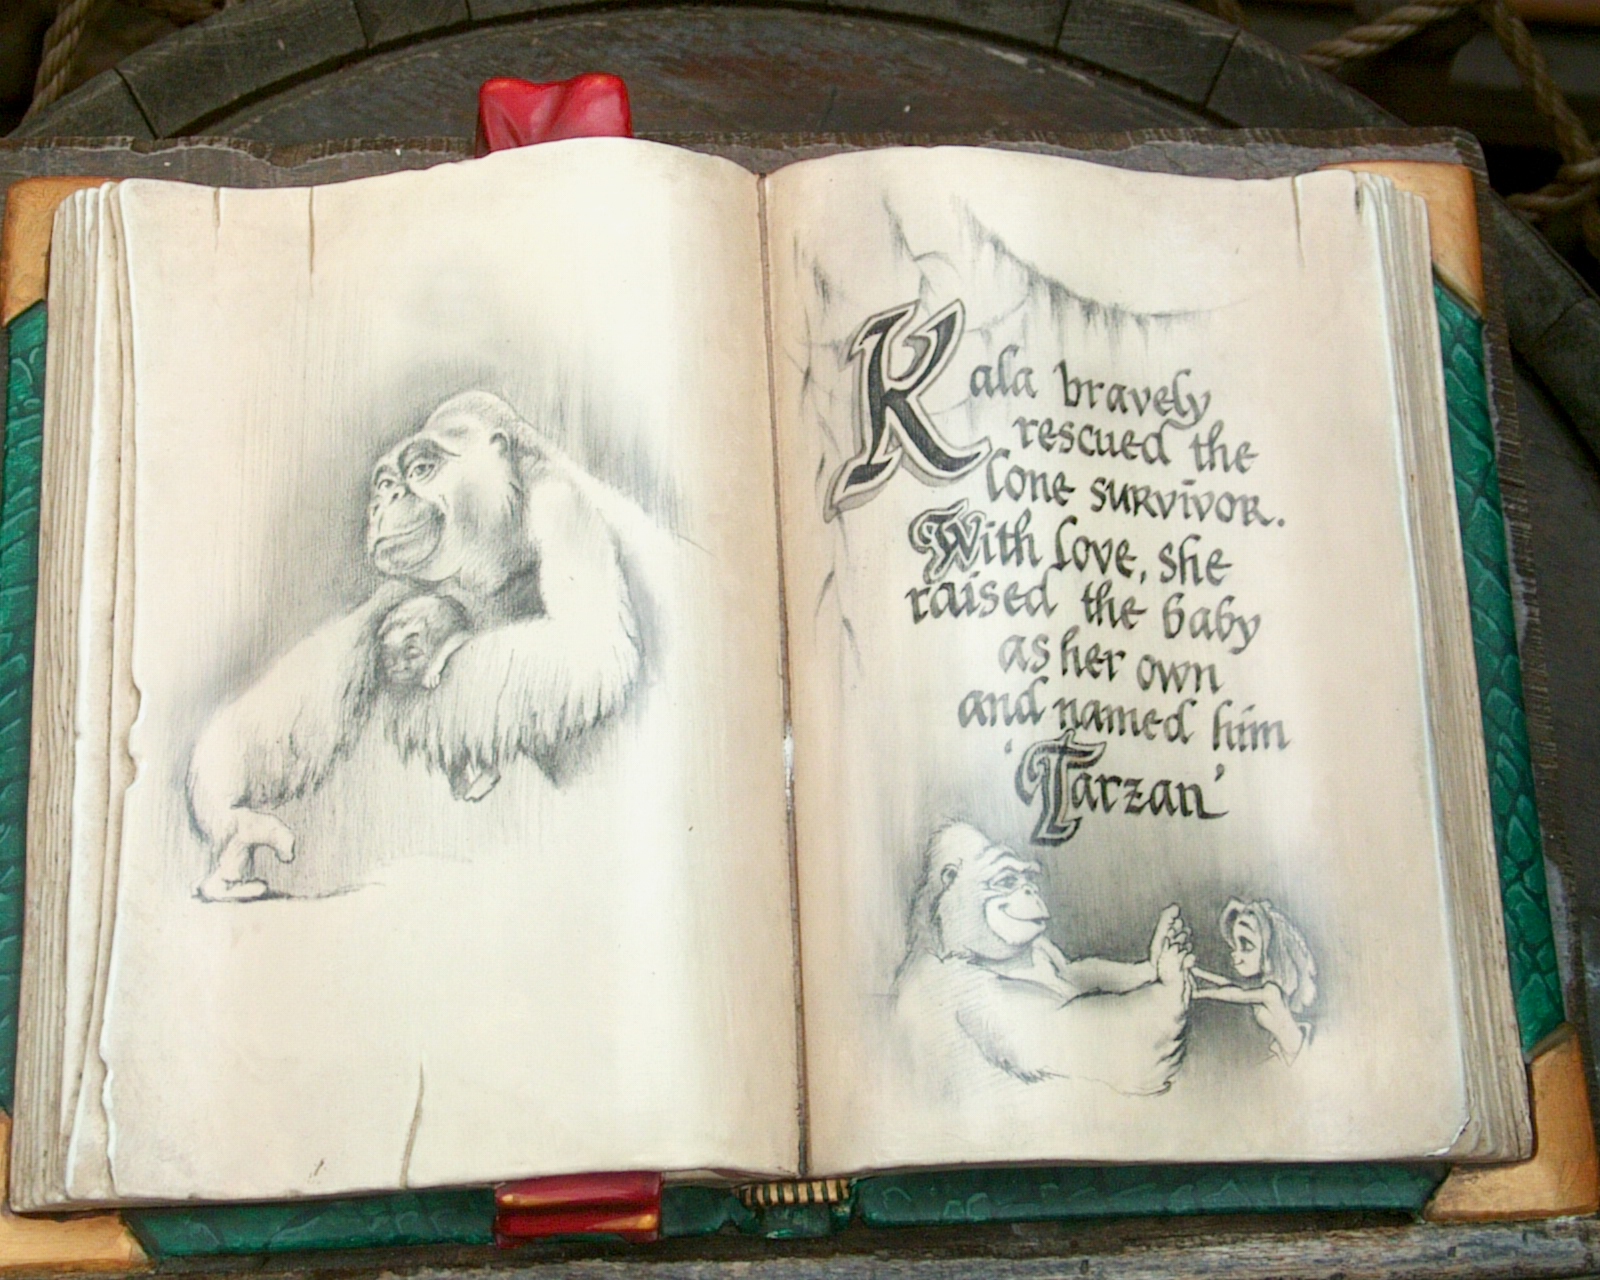 Kala bravely
rescued the
lone survivor.
With love, she
raised the baby
as her own
and named him
'Tarzan'